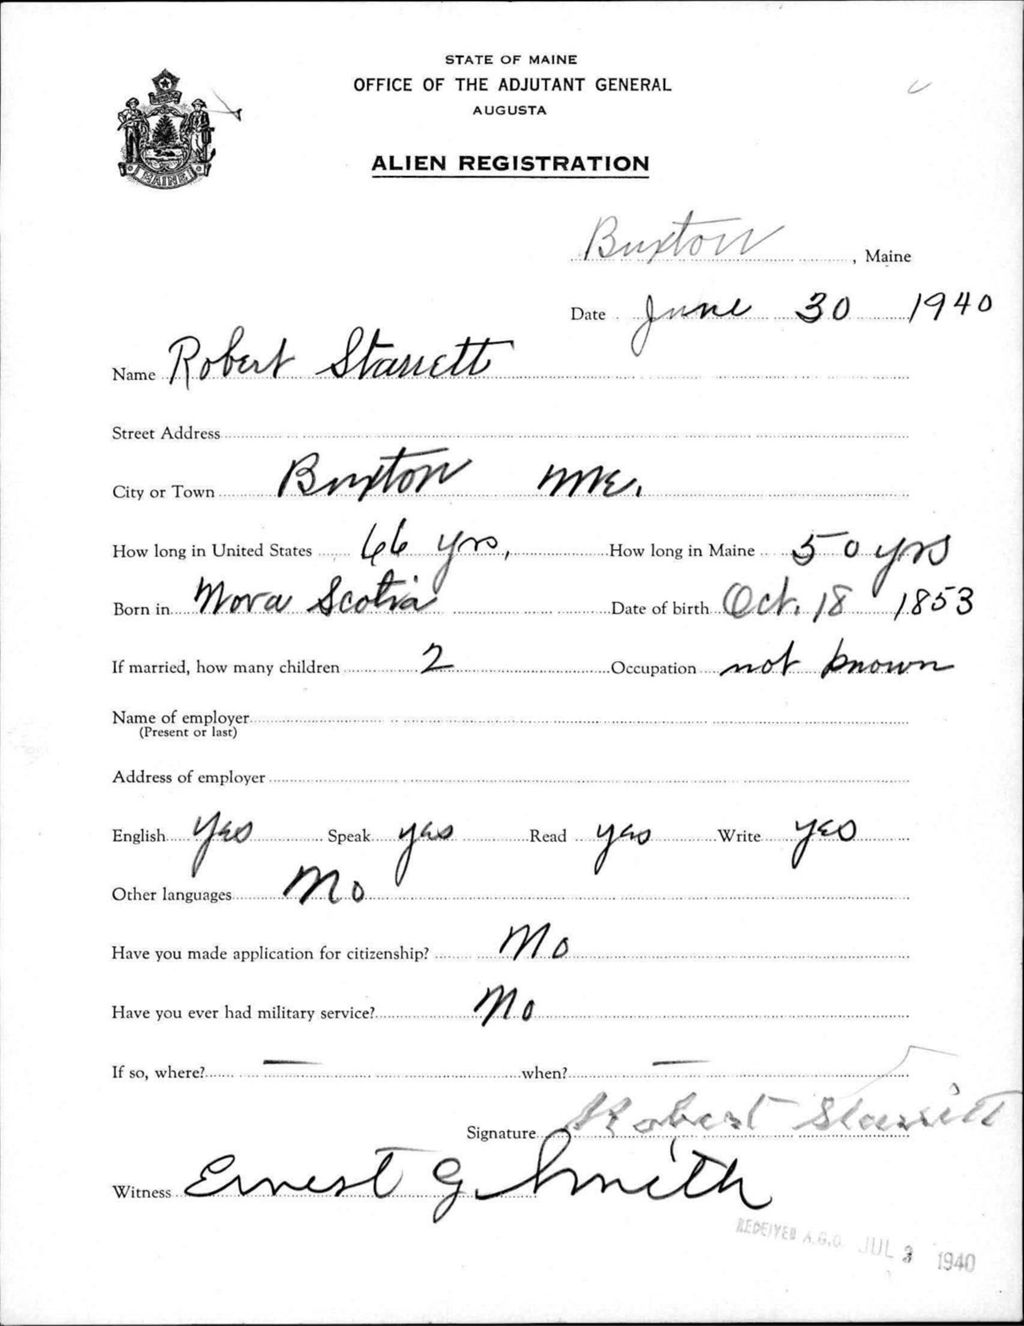 STATE OF MAINE
OFFICE OF THE ADJUTANT GENERAL
AUGUSTA
ALIEN REGISTRATION
MAINE
Buxton, Maine
Date June 30 1940
Name Robert Starrett
Street Address
City or Town Buxton Me.
How long in United States 66 yrs, How long in Maine 50 yrs
Born in Nova Scotia Date of birth Oct. 18 1853
If married, how many children 2 Occupation not known
Name of employer
(Present or last)
Address of employer
English yes Speak yes Read yes Write yes
Other languages No
Have you made application for citizenship? No
Have you ever had military service? No
If so, where? — when? —
Signature Robert Starrett
Witness Ernest G Smith
RECEIVED A.G.O. JUL 3 1940